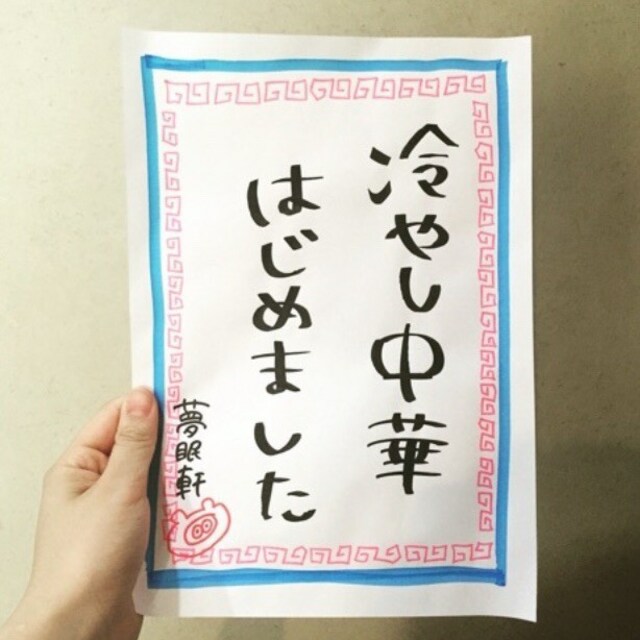 冷やし中華
はじめました
夢眠軒